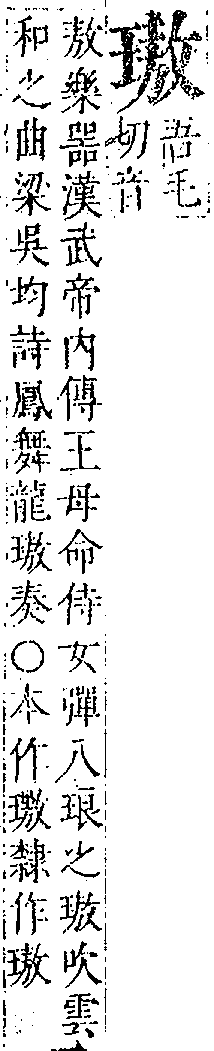 璈
吾毛
切音
敖樂器漢武帝內傳王母命侍女彈八琅之璈吹雲
和之曲梁吳均詩鳳舞龍璈奏○本作璬隸作璈